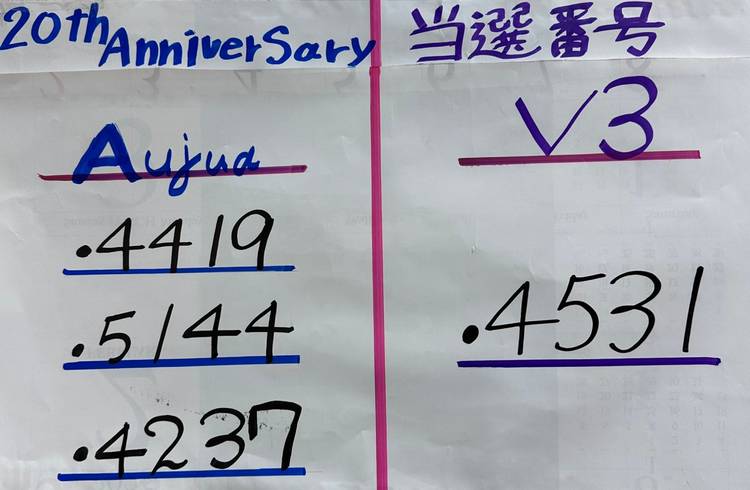 20th AnniverSary
当選番号
Aujua
・4419
・5144
・4237
V3
・4531